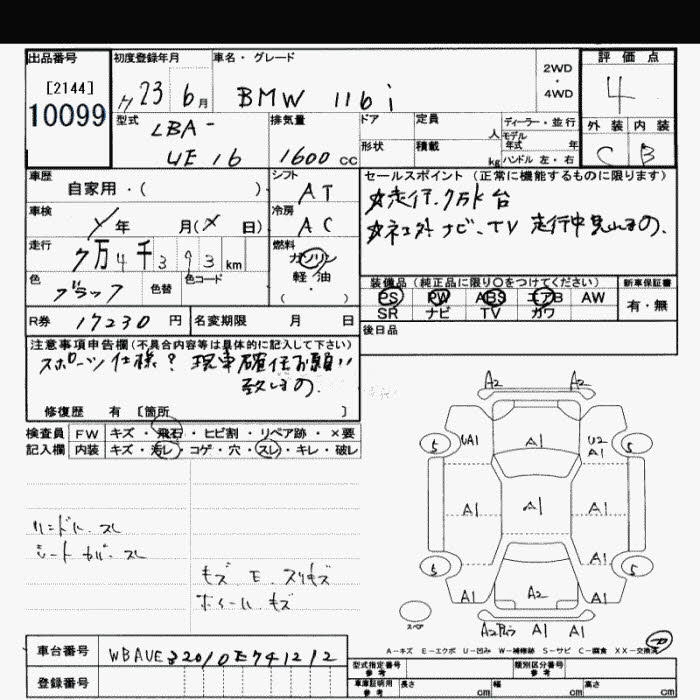 出品番号
[2144]
10099
初度登録年月
23 6月
車名・グレード
BMW 116i
2WD
・
4WD
評価点
4
外装 内装
C B
型式
LBA-
UE16
排気量
1600 CC
ドア
形状
定員
人
積載
kg
ディーラー・並行
モデル
年式 年
ハンドル 左・右
車歴
自家用・( )
シフト
AT
車検
年 月(メ 日)
冷房
AC
走行
7万4千393km
燃料
ガソリン
軽・油
( )
色
ブラック
色替
色コード
R券 17230 円
名変期限 月 日
セールスポイント (正常に機能するものに限ります)
走行7万k台
ナビ、TV 走行中
装備品(純正品に限り○をつけてください)
PS PW ABS エアB AW
SR ナビ TV ガワ
新車保証書
有・無
後日品
注意事項申告欄(不具合内容等は具体的に記入して下さい)
スポーツ仕様? 現車確認お願い
致します。
修復歴 有 [箇所 ]
検査員
記入欄
FW キズ・飛石・ヒビ割・リペア跡・×要
内装 キズ・汚レ・コゲ・穴・スレ・キレ・破レ
ハンドル、スレ
シートカバー、スレ
キズ E、スリキズ
ホイール、キズ
A2 A2
5 UA1 A1 U2 A1 5
A1 A1 A1
5 A1 5
A1 A2 A1
スペア
A1 A1
A-キズ E-エクボ U-凹み W-補修跡 S-サビ C-腐食 XX-交換済
車台番号 WBAUE32010E741212
登録番号
型式指定番号
参考
類別区分番号
参考
車庫証明用
参考
長さ cm 幅 cm 高さ cm